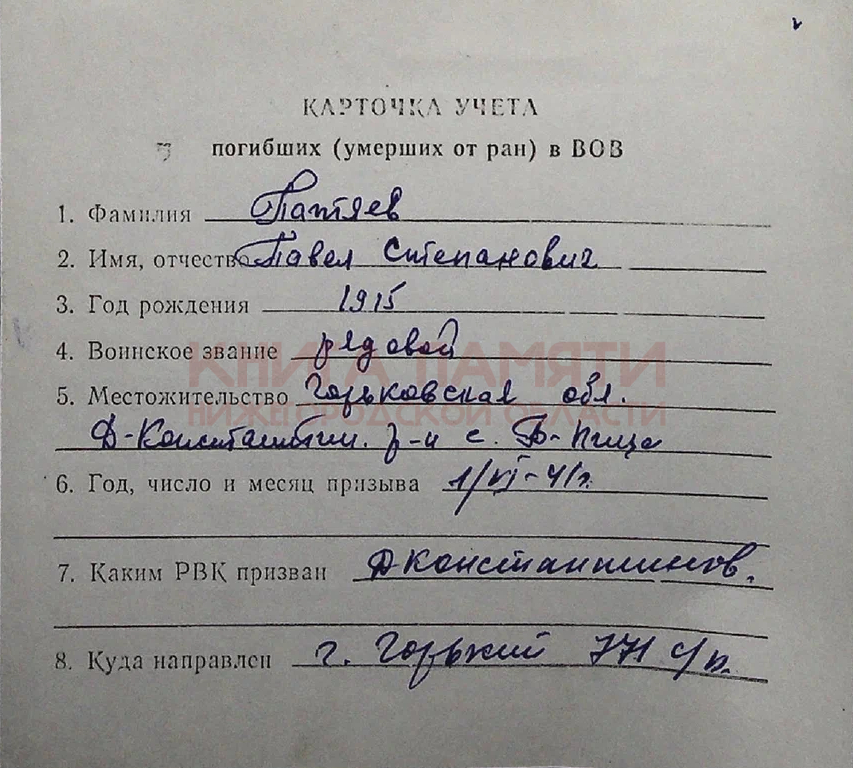 КАРТОЧКА УЧЕТА
погибших (умерших от ран) в ВОВ
1. Фамилия Паптяев
2. Имя, отчество Павел Степанович
3. Год рождения 1915
4. Воинское звание рядовой
КНИГА ПАМЯТИ
5. Местожительство Горьковская обл.
НИЖЕГОРОДСКОЙ ОБЛАСТИ
Д-Константин. р-н с. Б-Пица
6. Год, число и месяц призыва 1/VI-41г.
7. Каким РВК призван ДКонстантинов.
8. Куда направлен г. Горький 771 с/п.